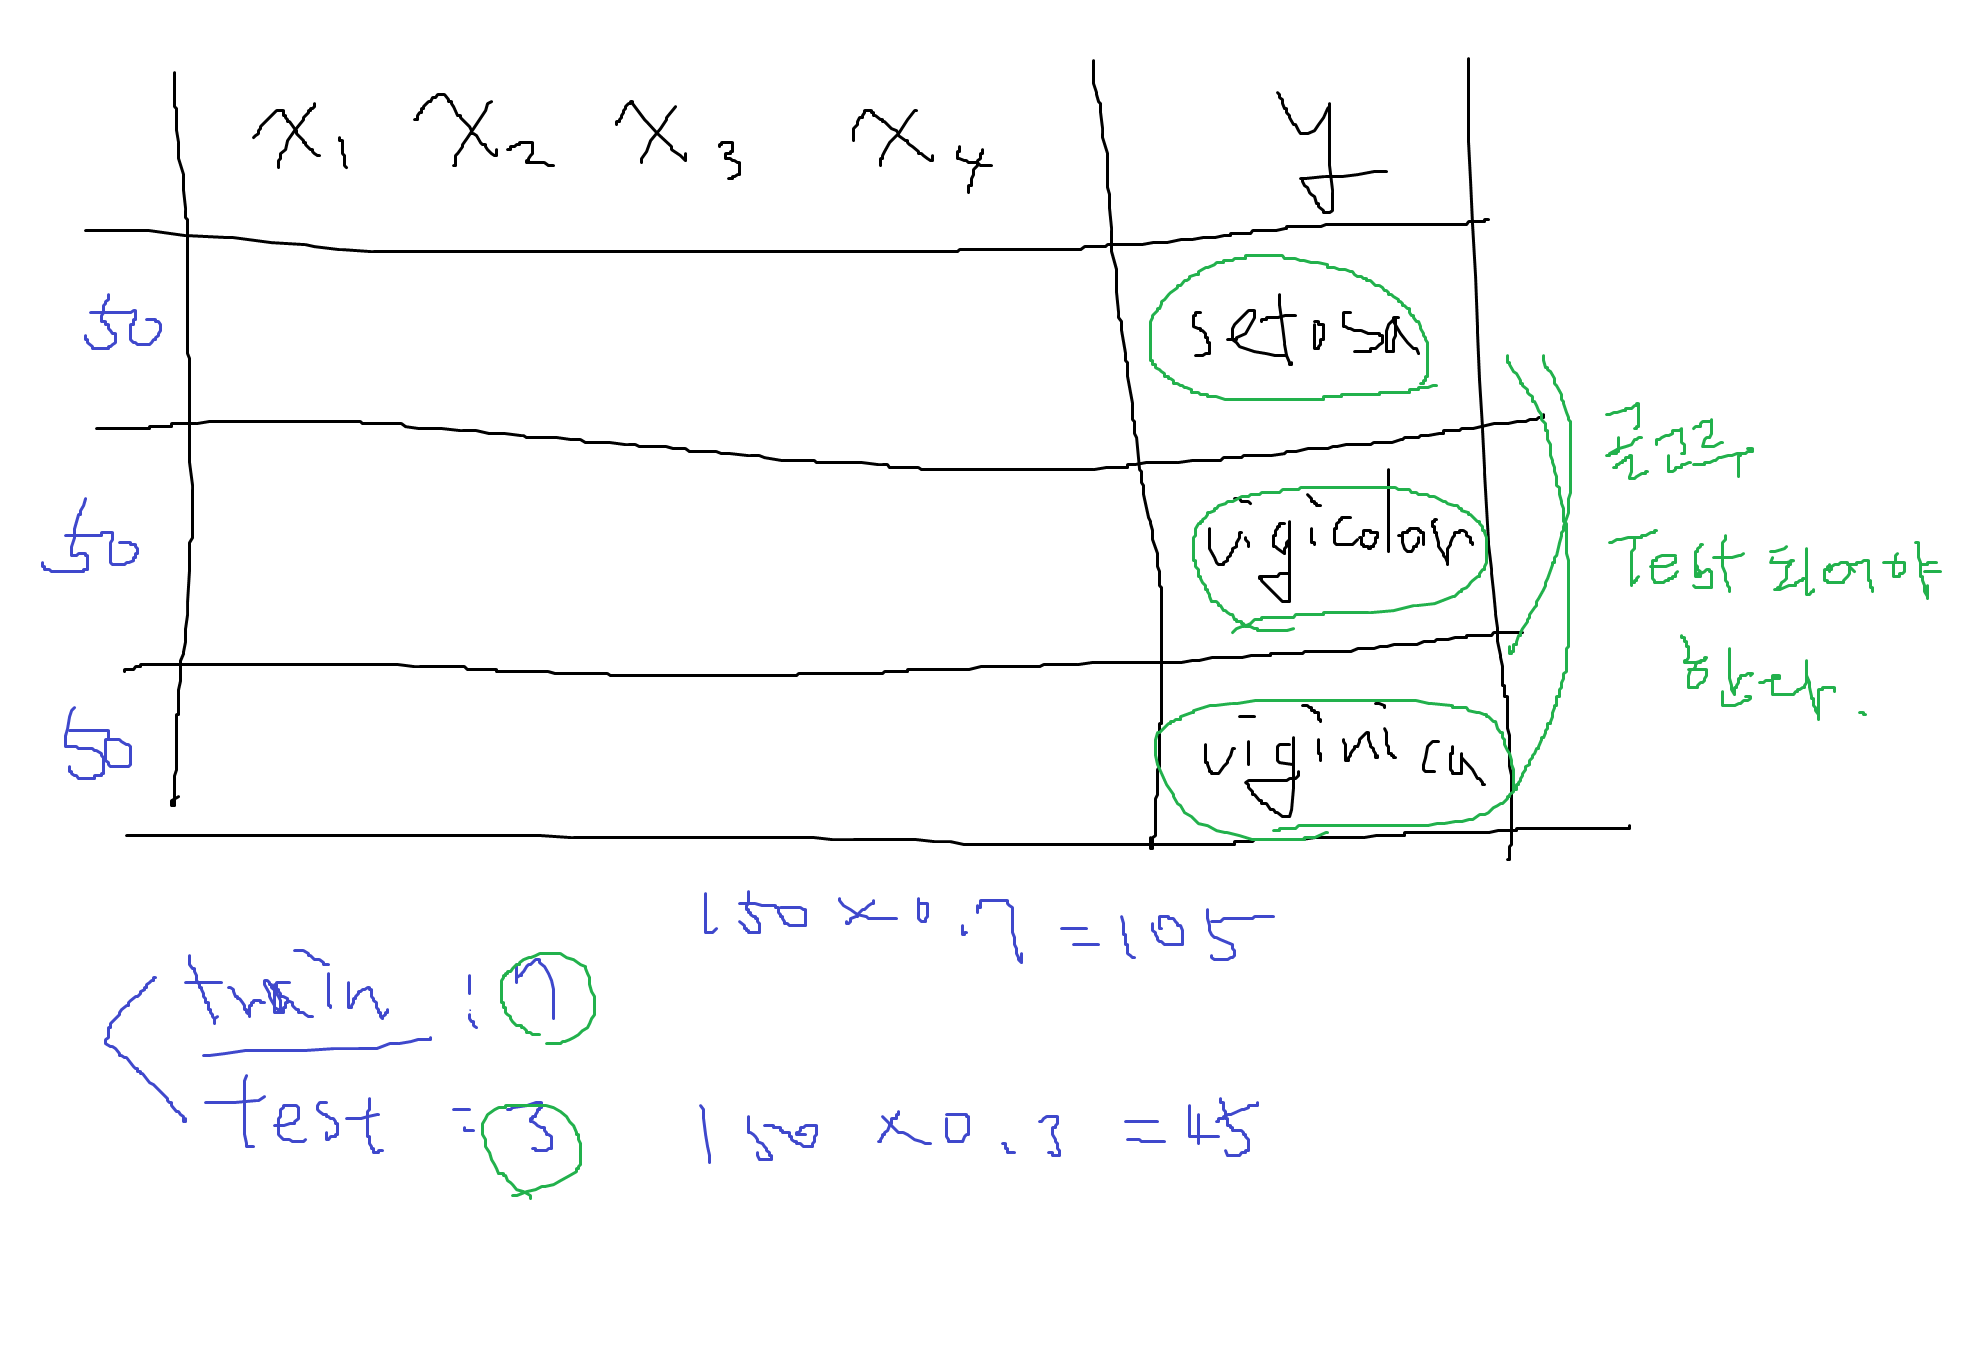 x₁ x₂ x₃ x₄ y
50 setosa
50 vigicolor
50 viginica
골고루
Test 되어야
한다.
150 × 0.7 = 105
train : 7
test = 3 150 × 0.3 = 45